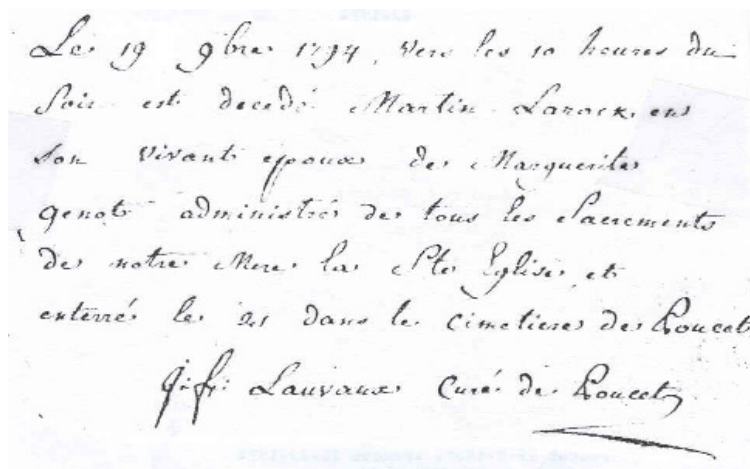 Le 19 9bre 1794, vers les 10 heures du
soir est decedé Martin Larock en
son vivant epoux de Marguerite
genot administré de tous les Sacrements
de notre Mere la Ste Eglise, et
enterré le 21 dans le Cimetiere de Roucet
Lauvaux Curé de Roucet